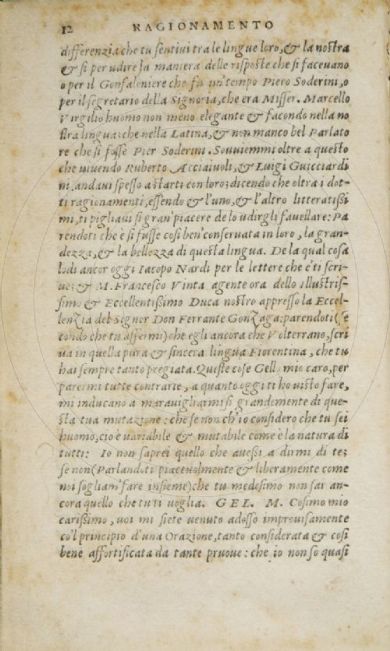 12 RAGIONAMENTO
differenzia che tu sentivi tra le lingue loro, & la nostra
& si per udire la maniera delle risposte che si facevano
o per il Gonfaloniere che fu un tempo Piero Soderini, o
per il segretario della Signoria, che era Misser. Marcello
Virgilio huomo non meno elegante & facondo nella no
stra lingua: che nella Latina, & non manco bel Parlato
re che si fusse Pier Soderini. Souviemmi oltre a questo
che vivendo Ruberto Acciaiuoli, & Luigi Guicciardi
ni, andavi spesso a starti con loro; dicendo che oltra i dot-
ti ragionamenti, essendo & l'uno, & l'altro litteratissi
mi, ti pigliavi sì gran' piacere de lo udirgli favellare: Pa
rendoti che è si fusse così ben' conservata in loro, la gran-
dezza, & la bellezza di questa lingua. De la qual cosa
lodi ancor oggi Iacopo Nardi per le lettere che è ti scri-
ve: & M. Francesco Vinta agente ora dello Illustris-
simo & Eccellentissimo Duca nostro appresso la Eccel-
lenzia del Signor Don Ferrante Gonzaga: parendoti (se
condo che tu affermi) che egli ancora che Volterrano, scri
va in quella pura & sincera lingua Fiorentina, che tu
hai sempre tanto pregiata. Queste cose Gell. mio caro, per
parermi tutte contrarie, a quanto oggi ti ho visto fare,
mi inducano a maravigliarmi sì grandemente di que-
sta tua mutazione: che se non ch'io considero che tu sei
huomo, cio è variabile & mutabile come è la natura di
tutti: Io non saprei quello che avessi a dirmi di te;
se non (Parlandoti piacevolmente & liberamente come
noi sogliam' fare insieme) che tu medesimo non sai an-
cora quello che tu ti voglia. GEL. M. Cosimo mio
carissimo, voi mi siete venuto adosso improvisamente
co'l principio d'una Orazione, tanto considerata & così
bene affortificata da tante pruove: che io non so quasi